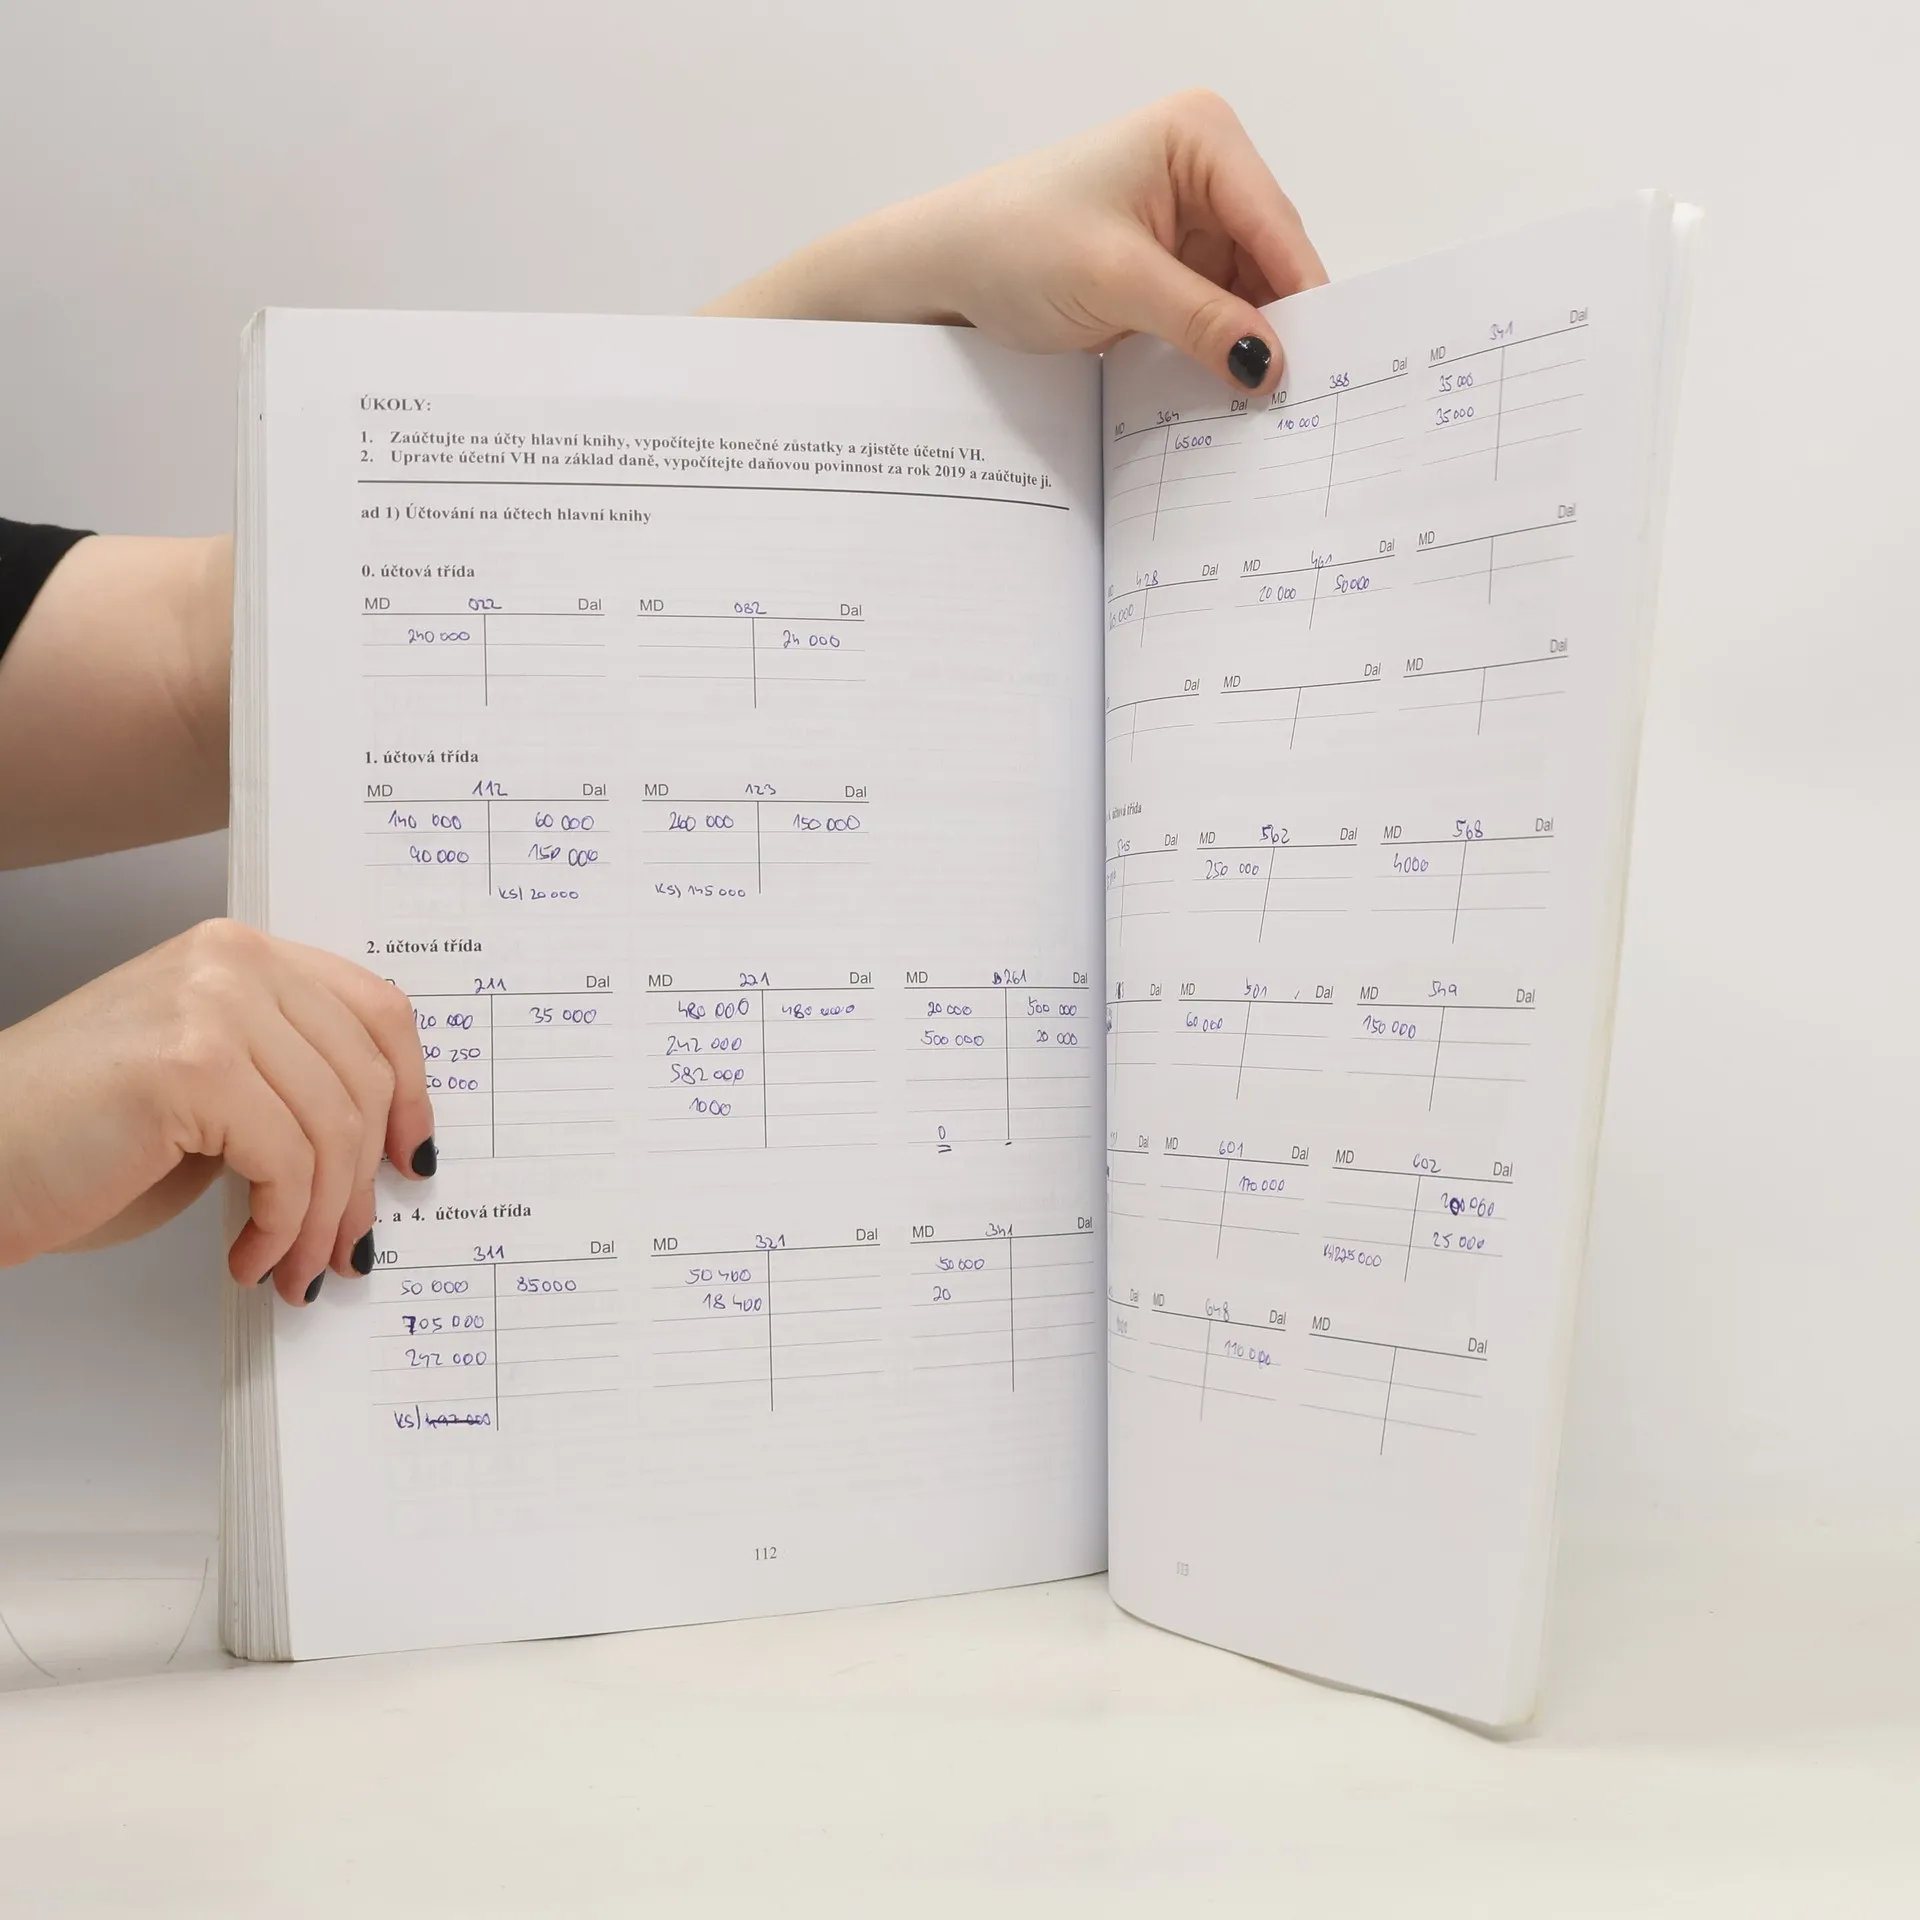 ÚKOLY:
1. Zaúčtujte na účty hlavní knihy, vypočítejte konečné zůstatky a zjistěte účetní VH.
2. Upravte účetní VH na základ daně, vypočítejte daňovou povinnost za rok 2019 a zaúčtujte ji.
ad 1) Účtování na účtech hlavní knihy
0. účtová třída
MD 022 Dal MD 082 Dal
240 000 24 000
1. účtová třída
MD 112 Dal MD 123 Dal
140 000 60 000 260 000 150 000
90 000 150 000
KS/ 20 000 KS) 145 000
2. účtová třída
211 Dal MD 221 Dal MD 261 Dal
35 000 480 000 480 000 20 000 500 000
30 250 242 000 500 000 20 000
582 000
1000
0
a 4. účtová třída
MD 311 Dal MD 321 Dal MD 341 Dal
50 000 85000 50 400 50 000
705 000 18 400 20
242 000
KS/ 492 000
112
MD 364 Dal MD 388 Dal MD 341 Dal
65000 110 000 35 000
35 000
428 Dal MD 461 Dal MD Dal
20 000 50000
Dal MD Dal MD Dal
účtová třída
545 Dal MD 562 Dal MD 568 Dal
250 000 4000
Dal MD 501 Dal MD 549 Dal
60 000 150 000
Dal MD 601 Dal MD 602 Dal
170 000 200 000
25 000
KS/225 000
Dal MD 648 Dal MD Dal
110 000
113